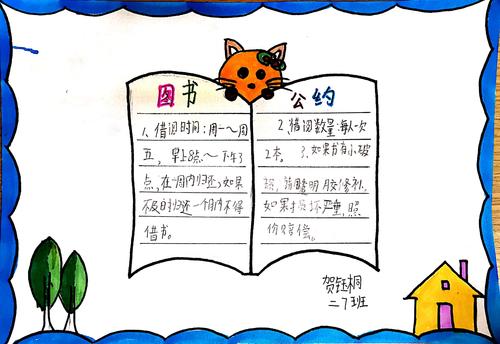 图书 公约
1、借阅时间：周一～周
五，早上8点～下午3
点，在一周内归还，如果
不及时归还一个月内不得
借书。
2、借阅数量：每人一次
2本。 3、如果书有小破
损，请用透明胶修补，
如果损坏严重，照
价赔偿。
贺钰桐
二7班